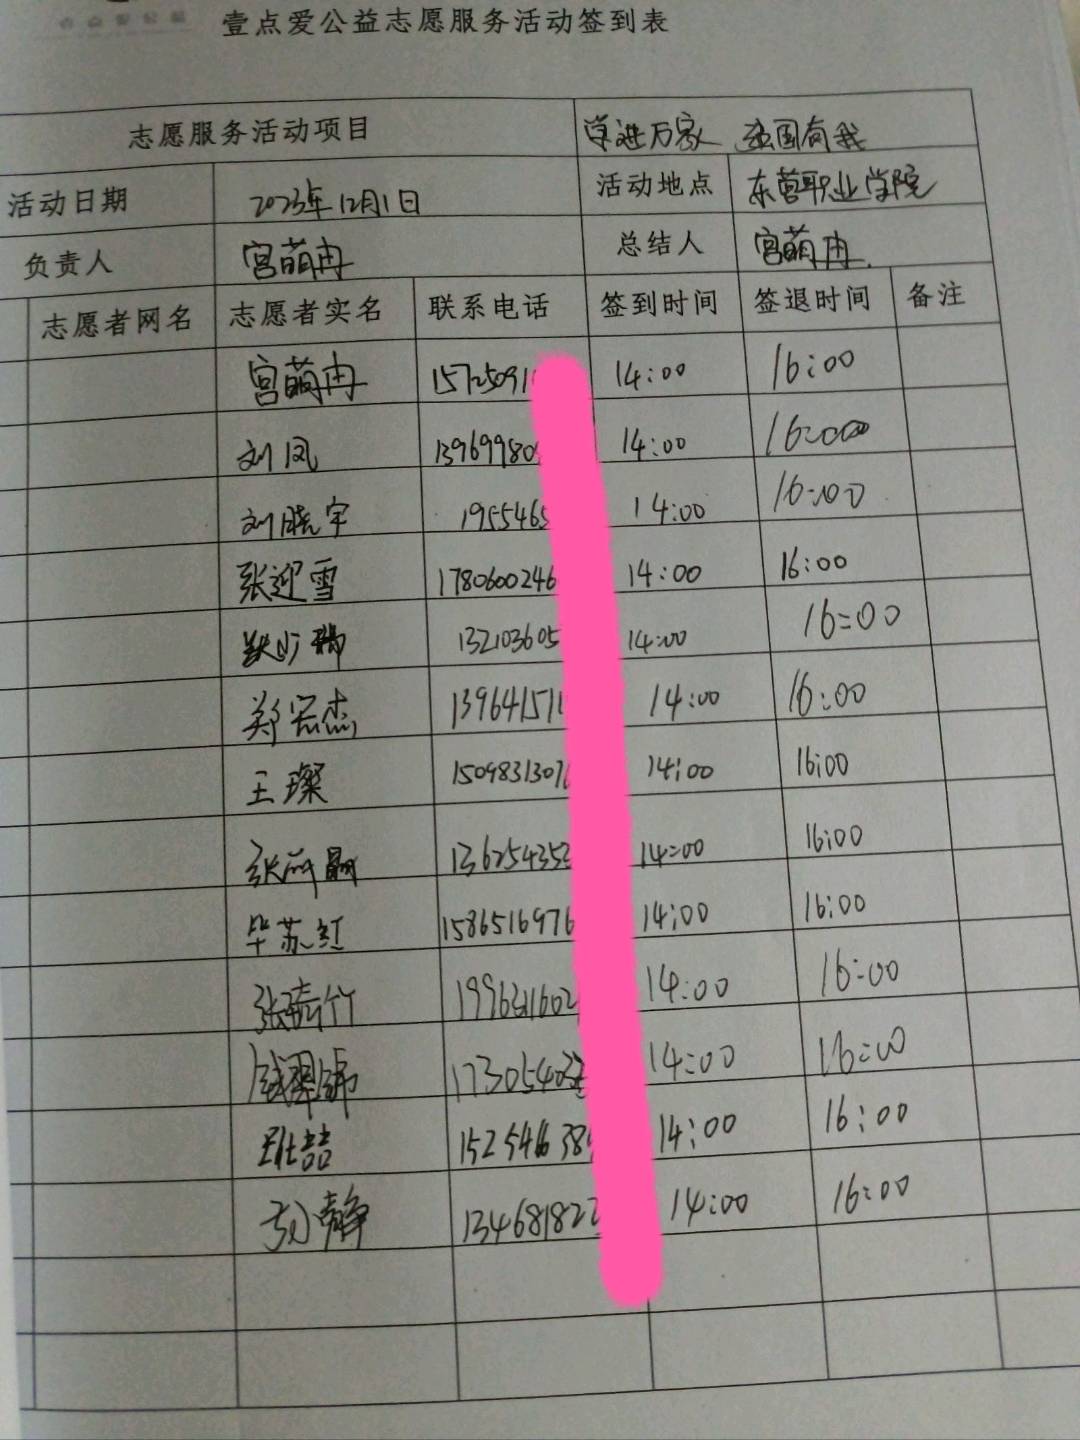 壹点爱公益志愿服务活动签到表
志愿服务活动项目 学进万家 强国有我
活动日期 2023年12月1日 活动地点 东营职业学院
负责人 宫萌冉 总结人 宫萌冉
志愿者网名 志愿者实名 联系电话 签到时间 签退时间 备注
宫萌冉 1572509 14:00 16:00
刘凤 13969980 14:00 16:00
刘晓宇 1955465 14:00 16:00
张迎雪 1780600246 14:00 16:00
132103605 14:00 16:00
郑宏杰 13964151 14:00 16:00
王璨 1509831307 14:00 16:00
张 136254353 14:00 16:00
毕苏红 1586516976 14:00 16:00
张 竹 199631602 14:00 16:00
173054 14:00 16:00
喆 152546 38 14:00 16:00
静 134681822 14:00 16:00